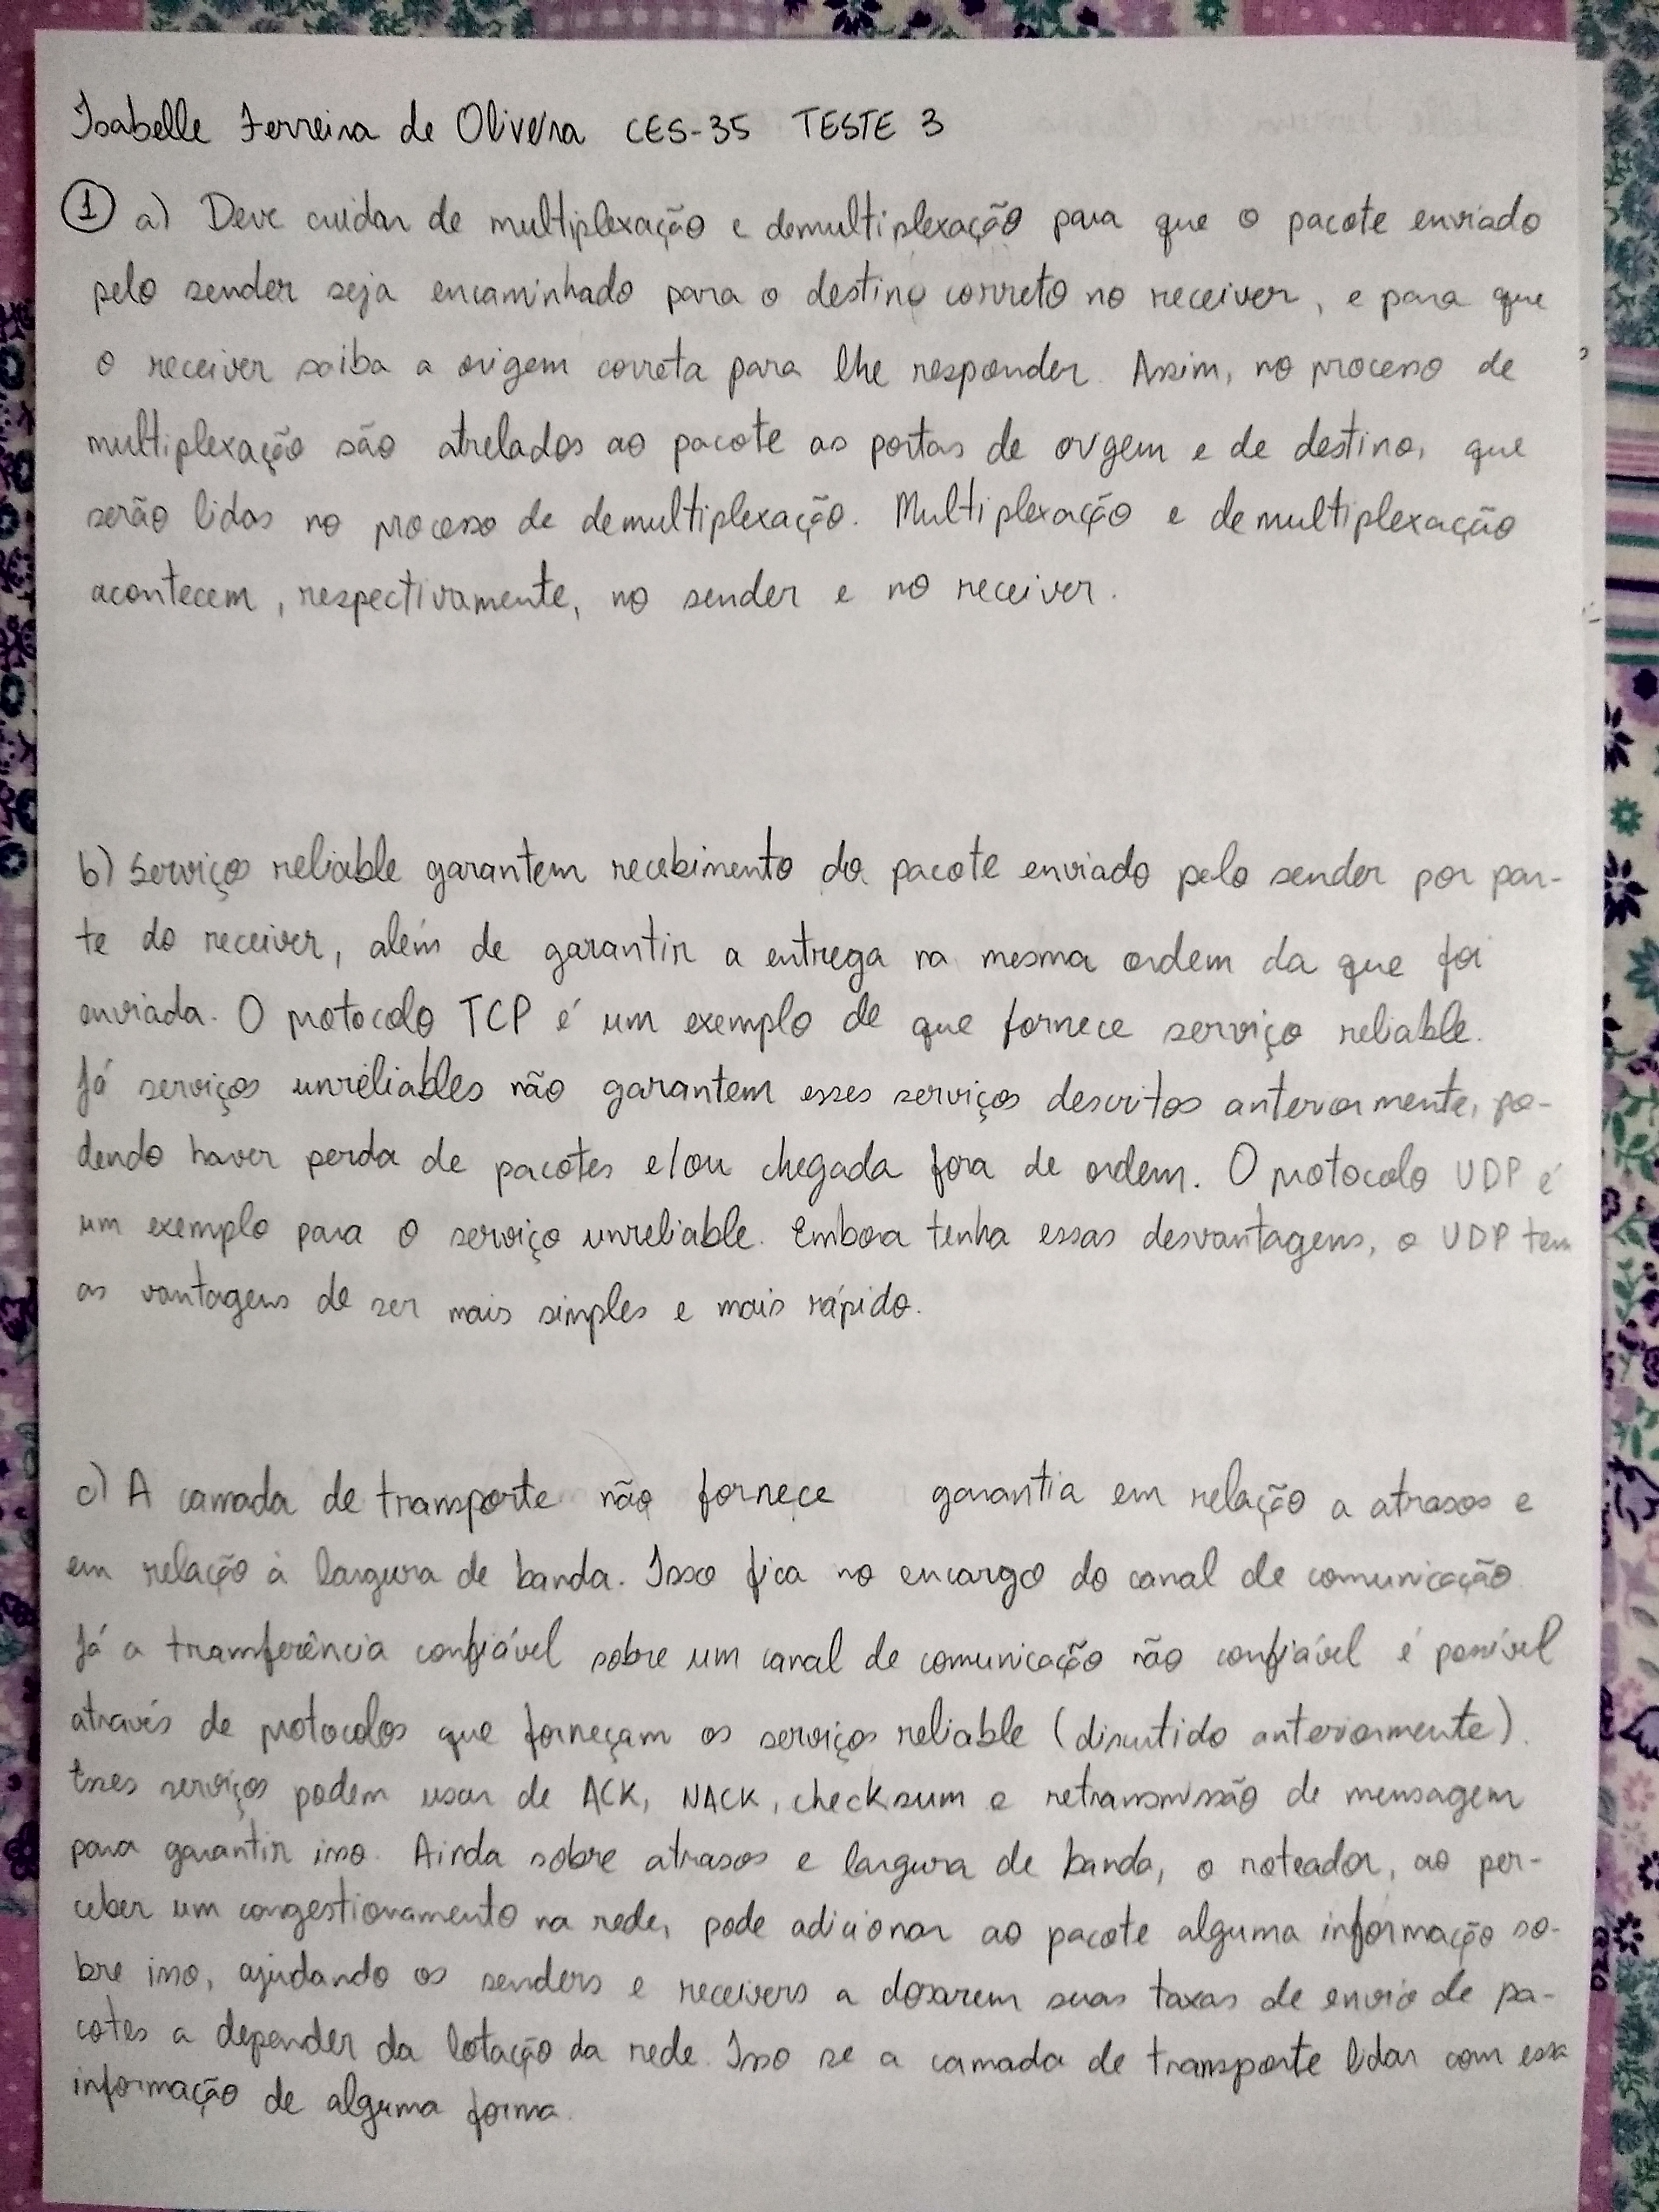 Isabelle Ferreira de Oliveira CES-35 TESTE 3
① a) Deve cuidar de multiplexação e demultiplexação para que o pacote enviado
pelo sender seja encaminhado para o destino correto no receiver, e para que
o receiver saiba a origem correta para lhe responder. Assim, no processo de
multiplexação são atrelados ao pacote as portas de origem e de destino, que
serão lidas no processo de demultiplexação. Multiplexação e demultiplexação
acontecem, respectivamente, no sender e no receiver.
b) Serviços reliable garantem recebimento do pacote enviado pelo sender por par-
te do receiver, além de garantir a entrega na mesma ordem da que foi
enviada. O protocolo TCP é um exemplo de que fornece serviço reliable.
Já serviços unreliables não garantem esses serviços descritos anteriormente, po-
dendo haver perda de pacotes e/ou chegada fora de ordem. O protocolo UDP é
um exemplo para o serviço unreliable. Embora tenha essas desvantagens, o UDP tem
as vantagens de ser mais simples e mais rápido.
c) A camada de transporte não fornece garantia em relação a atrasos e
em relação à largura de banda. Isso fica no encargo do canal de comunicação
Já a transferência confiável sobre um canal de comunicação não confiável é possível
através de protocolos que forneçam os serviços reliable (discutido anteriormente).
Esses serviços podem usar de ACK, NACK, checksum e retransmissão de mensagem
para garantir isso. Ainda sobre atrasos e largura de banda, o roteador, ao per-
ceber um congestionamento na rede, pode adicionar ao pacote alguma informação so-
bre isso, ajudando os senders e receivers a dosarem suas taxas de envio de pa-
cotes a depender da lotação da rede. Isso se a camada de transporte lidar com essa
informação de alguma forma.